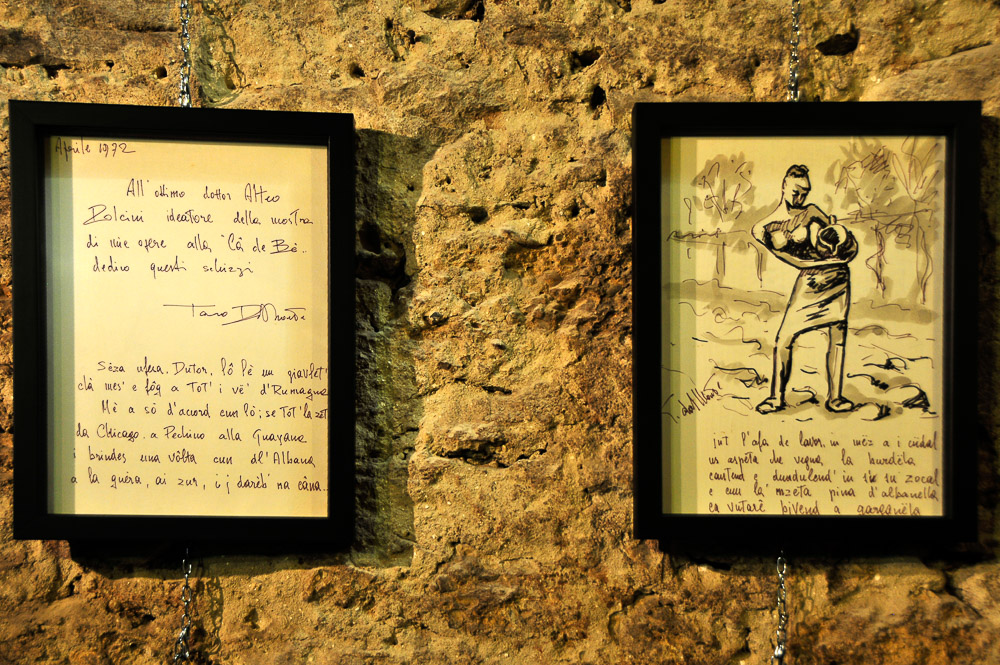 Aprile 1972
All'ottimo dottor Alteo
Dolcini ideatore della mostra
di mie opere alla "Cà de Bè..
dedico questi schizzi
Sèza ufesa. Dutor, lô l'è un giavlet'
clà mes' e fôg a Tot' i vè' d'Rumagna
Mè a sò d'acord cun lò; se Tot' la zet
da Chicago. a Pechino alla Guayana
i brindes una vôlta cun dl'Albana
a la guèra, ai zur, i j darèb' na câna..
int l'afa de lavor, in mèz a i cudal
us aspèta che vegna la burdèla
cantend e dundulend' in su zocal
e cun la' mzeta pina d'albanella
ca vutarê bivend a garganèla